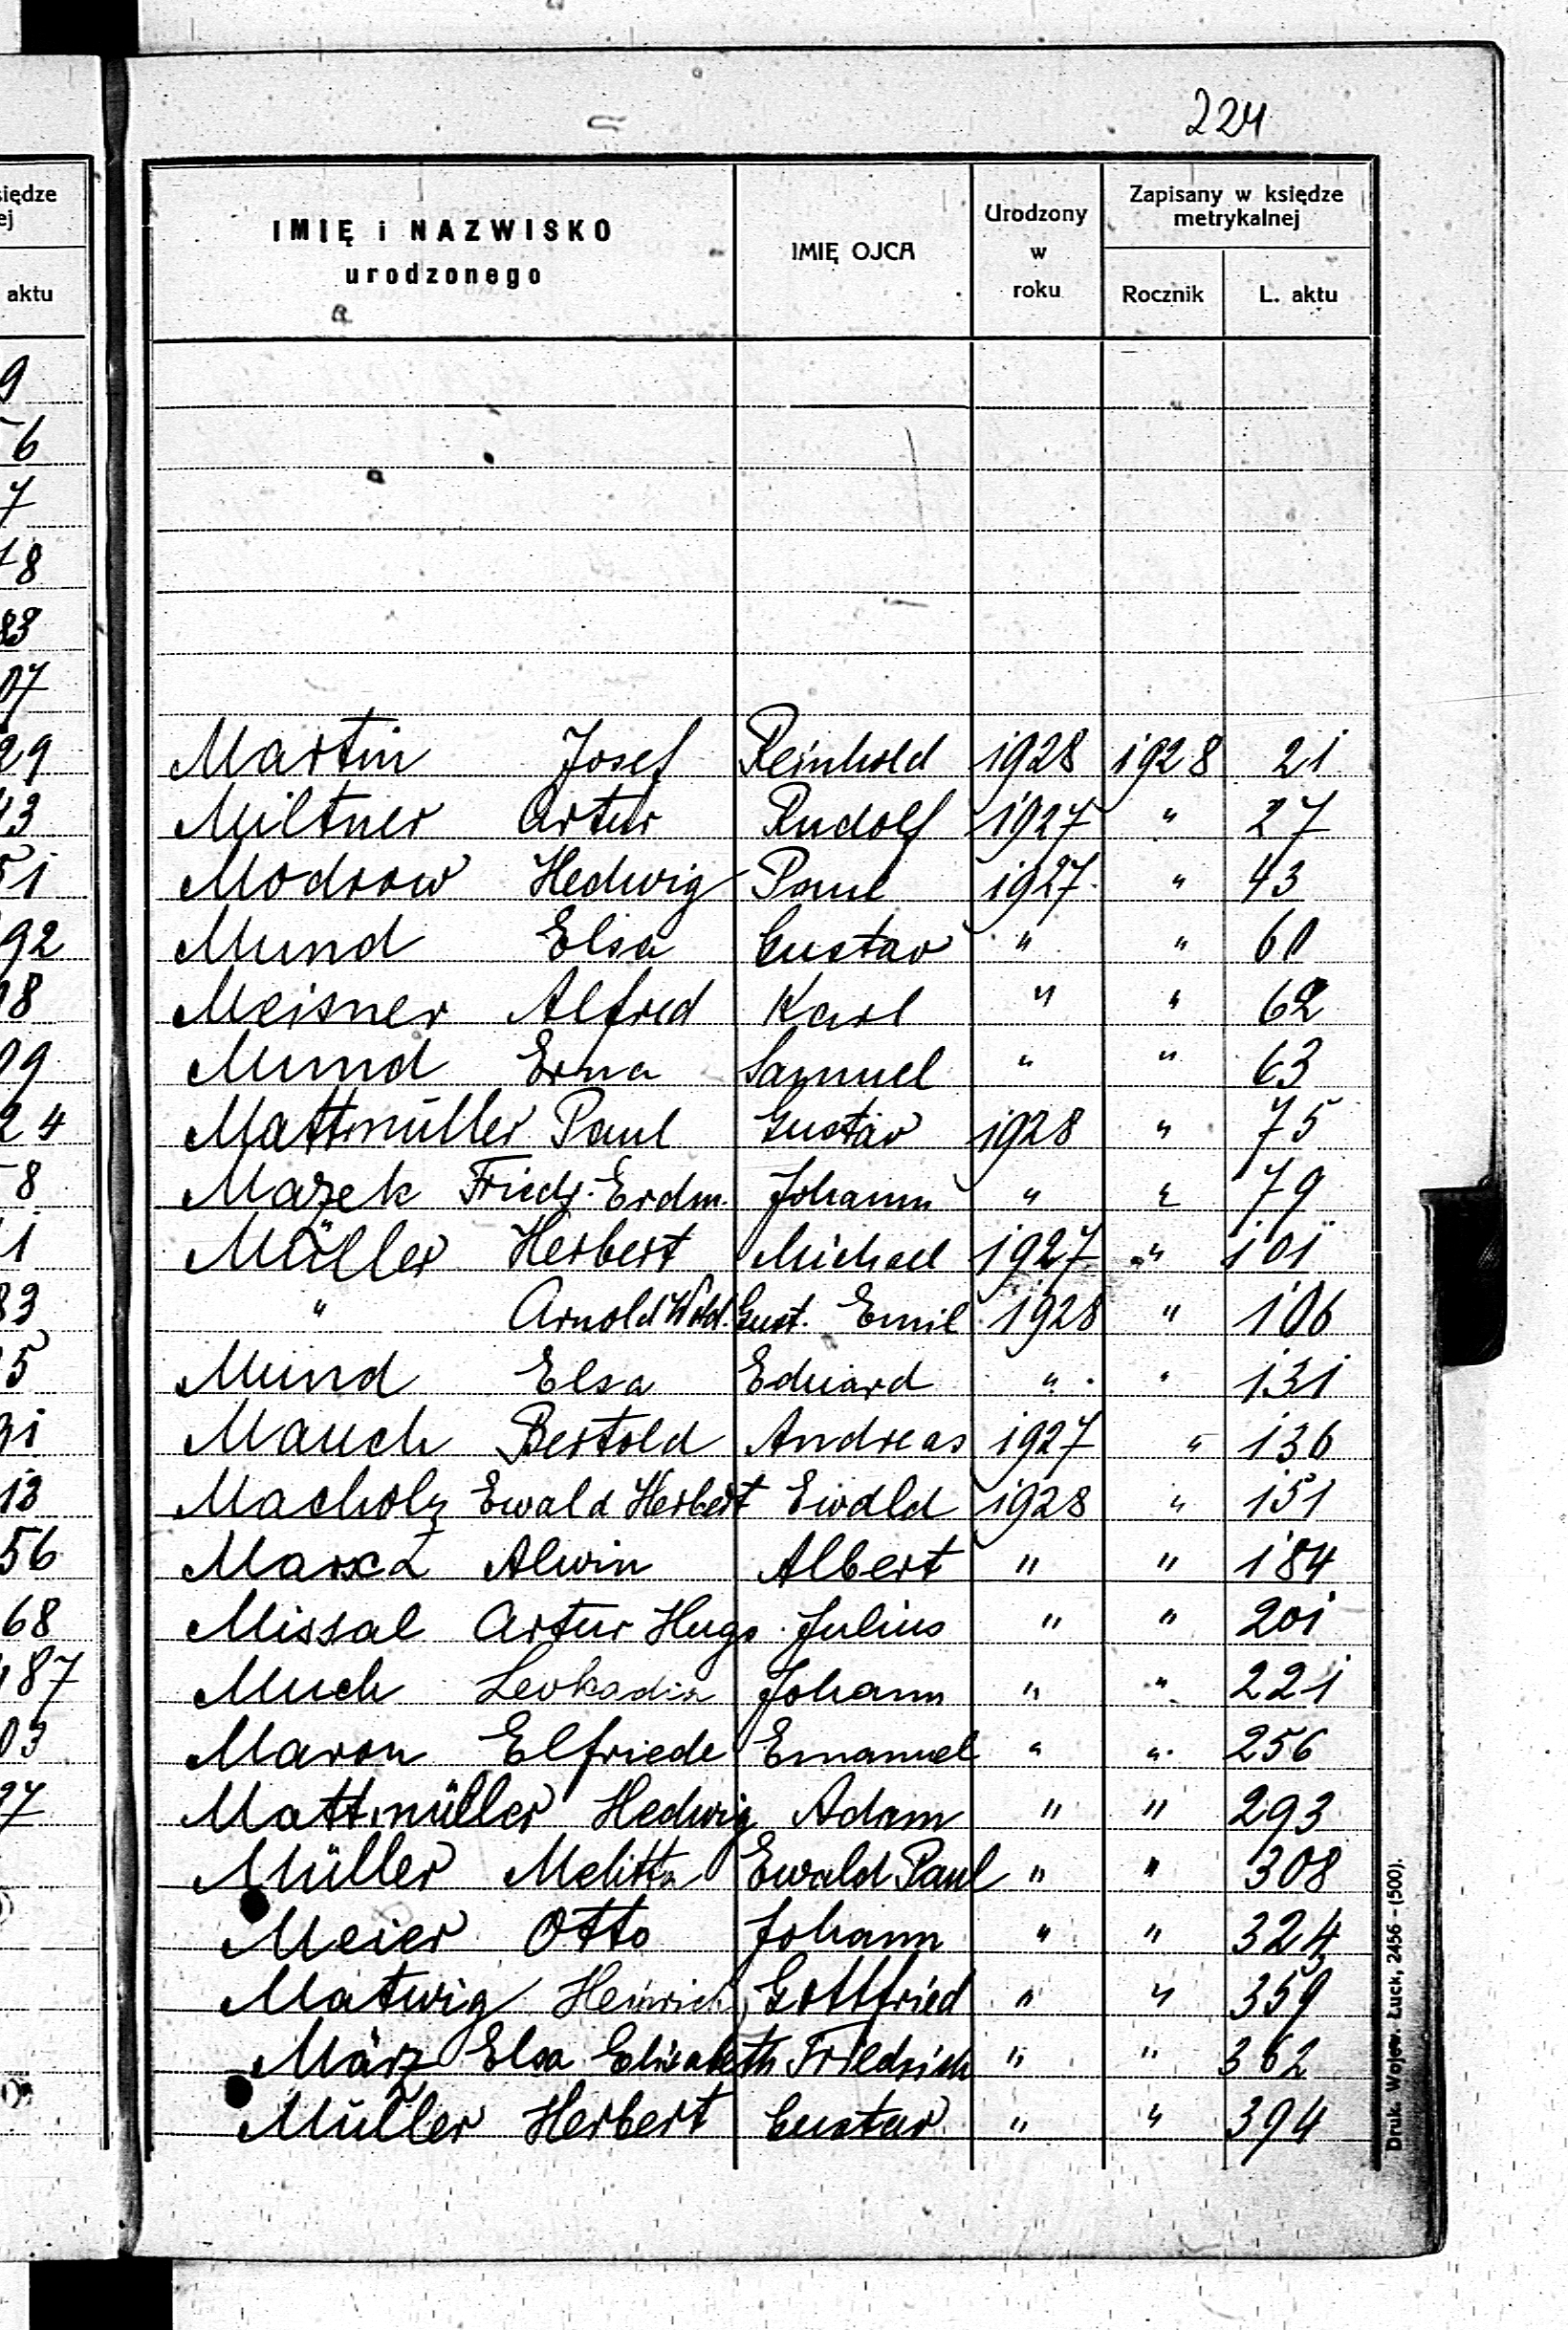 224
IMIĘ i NAZWISKO urodzonego IMIĘ OJCA Urodzony w roku Zapisany w księdze metrykalnej Rocznik L. aktu
Martin Josef Reinhold 1928 1928 21
Miltner Artur Rudolf 1927 " 27
Modrow Hedwig Paul 1927 " 43
Mund Elsa Gustav " " 60
Meisner Alfred Karl " " 62
Mund Erna Samuel " " 63
Mattmüller Paul Gustav 1928 " 75
Mazek Friedr. Erdm. Johann " " 79
Müller Herbert Michael 1927 " 101
" Arnold Gust. Emil 1928 " 106
Mund Elsa Eduard " " 131
Mauch Bertold Andreas 1927 " 136
Macholz Ewald Herbert Ewald 1928 " 151
Alwin Albert " " 184
Missal Artur Hugo Julius " " 201
Much Leokadia Johann " " 221
Maron Elfriede Emanuel " " 256
Mattmüller Hedwig Adam " " 293
Müller Melitta Ewald Paul " " 308
Meier Otto Johann " " 324
Matwig Heinrich Gottfried " " 359
März Elsa Elisabeth Friedrich " " 362
Müller Herbert Gustav " " 394
Druk. Wojew. Łuck, 2456 – (500).
siędze
ej
aktu
9
56
7
18
83
07
29
43
51
92
08
09
24
58
1
83
5
31
13
56
68
187
03
27